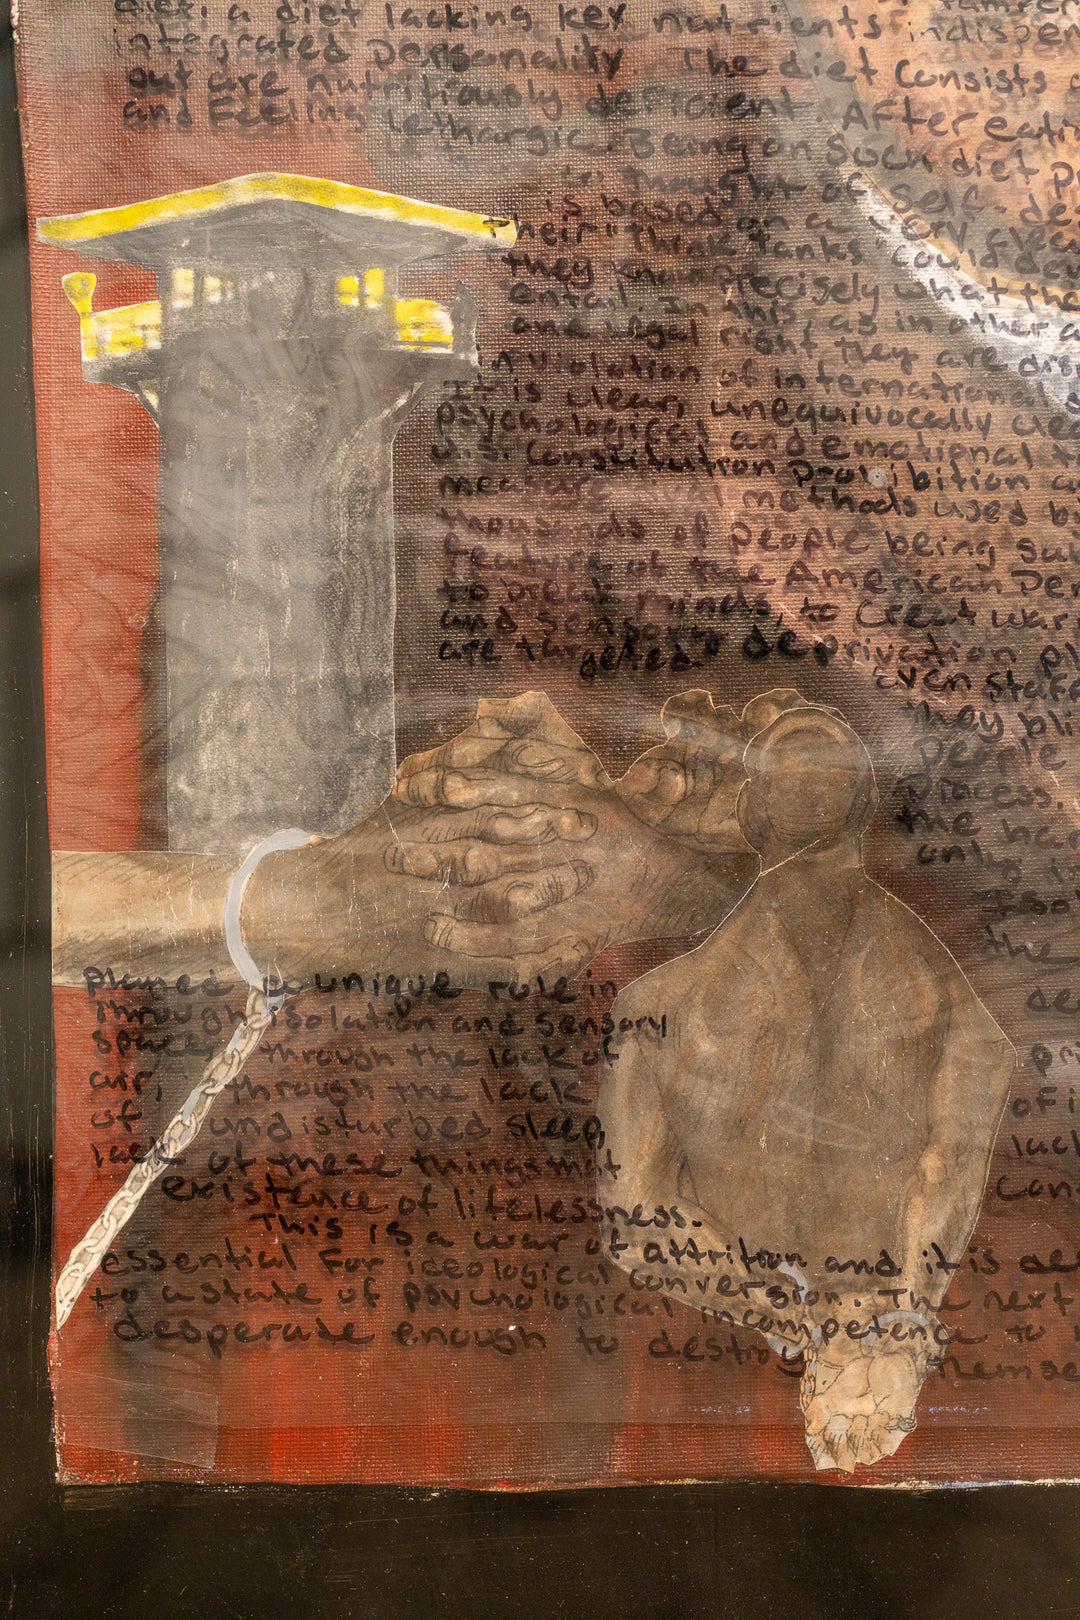 diet, a diet lacking key nutrients indispen
integrated personality. The diet consists
out are nutritiously deficient. After eati
and Feeling lethargic. Being on such diet p
thought of self-de
is based on a very clea
Their think tanks could dev
they know precisely what the
entail. In this, as in other a
one legal right they are dis
in violation of international
It is clear, unequivocally clea
psychological and emotional t
U.S. Constitution prohibition a
measure methods used b
thousands of people being su
feature of the American Pen
to break minds, to creat war
and sensory deprivation pl
are targeted
even staff
they bli
people
process,
the har
only i
Isol
the
de
played a unique role in
through isolation and sensory
space, through the lack of
air, through the lack
of undisturbed sleep,
lack of these things that
existence of lifelessness.
This is a war of attrition and it is de
essential for ideological conversion. The next
to a state of psychological incompetence to
desperate enough to destroy themse
pri
of i
lack
con